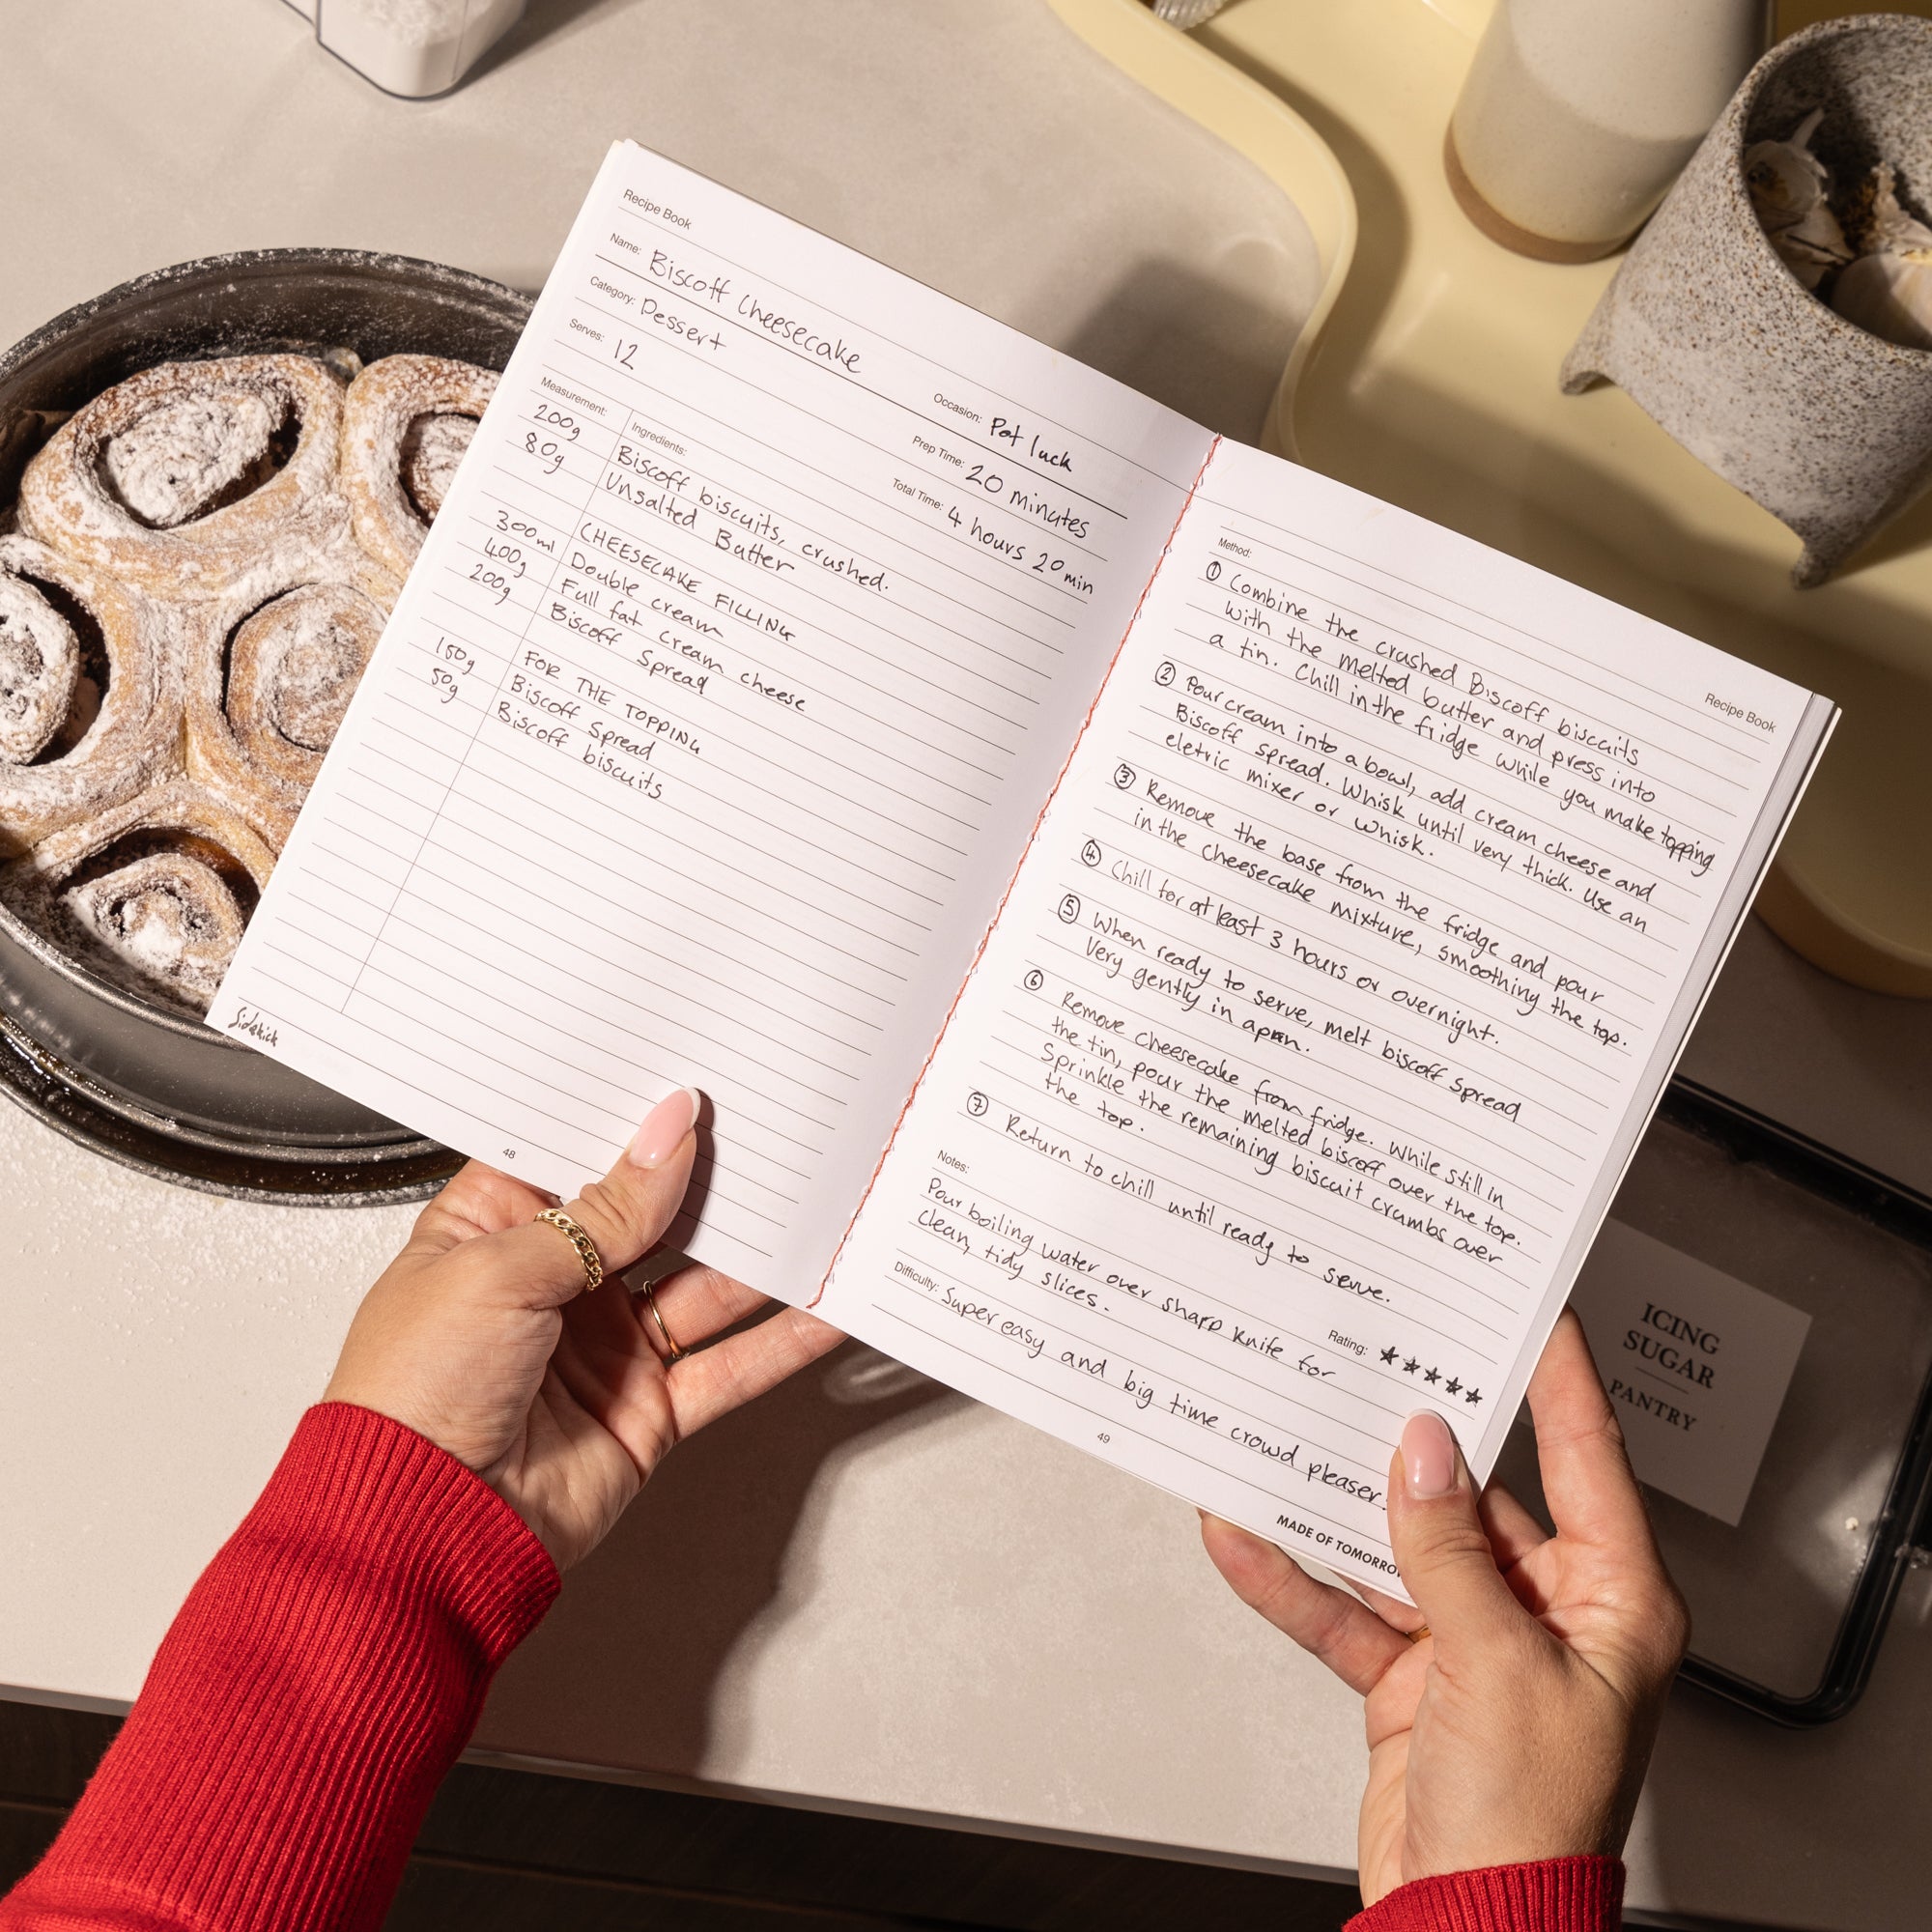 Recipe Book
Name: Biscoff Cheesecake
Category: Dessert
Occasion: Pot luck
Serves: 12
Prep Time: 20 minutes
Total Time: 4 hours 20 min
Measurement: Ingredients:
200g Biscoff biscuits, crushed.
80g Unsalted Butter
CHEESECAKE FILLING
300ml Double cream
400g Full fat cream cheese
200g Biscoff Spread
FOR THE TOPPING
150g Biscoff Spread
50g Biscoff biscuits
Sidekick
48
Recipe Book
Method:
① Combine the crushed Biscoff biscuits
with the melted butter and press into
a tin. Chill in the fridge while you make topping
② Pour cream into a bowl, add cream cheese and
Biscoff spread. Whisk until very thick. Use an
eletric mixer or whisk.
③ Remove the base from the fridge and pour
in the cheesecake mixture, smoothing the top.
④ Chill for at least 3 hours or overnight.
⑤ When ready to serve, melt biscoff spread
very gently in a pan.
⑥ Remove cheesecake from fridge. While still in
the tin, pour the melted biscoff over the top.
Sprinkle the remaining biscuit crumbs over
the top.
⑦ Return to chill until ready to serve.
Notes:
Pour boiling water over sharp knife for
clean, tidy slices.
Rating: ★★★★★
Difficulty: Super easy and big time crowd pleaser.
49
MADE OF TOMORROW
ICING
SUGAR
PANTRY